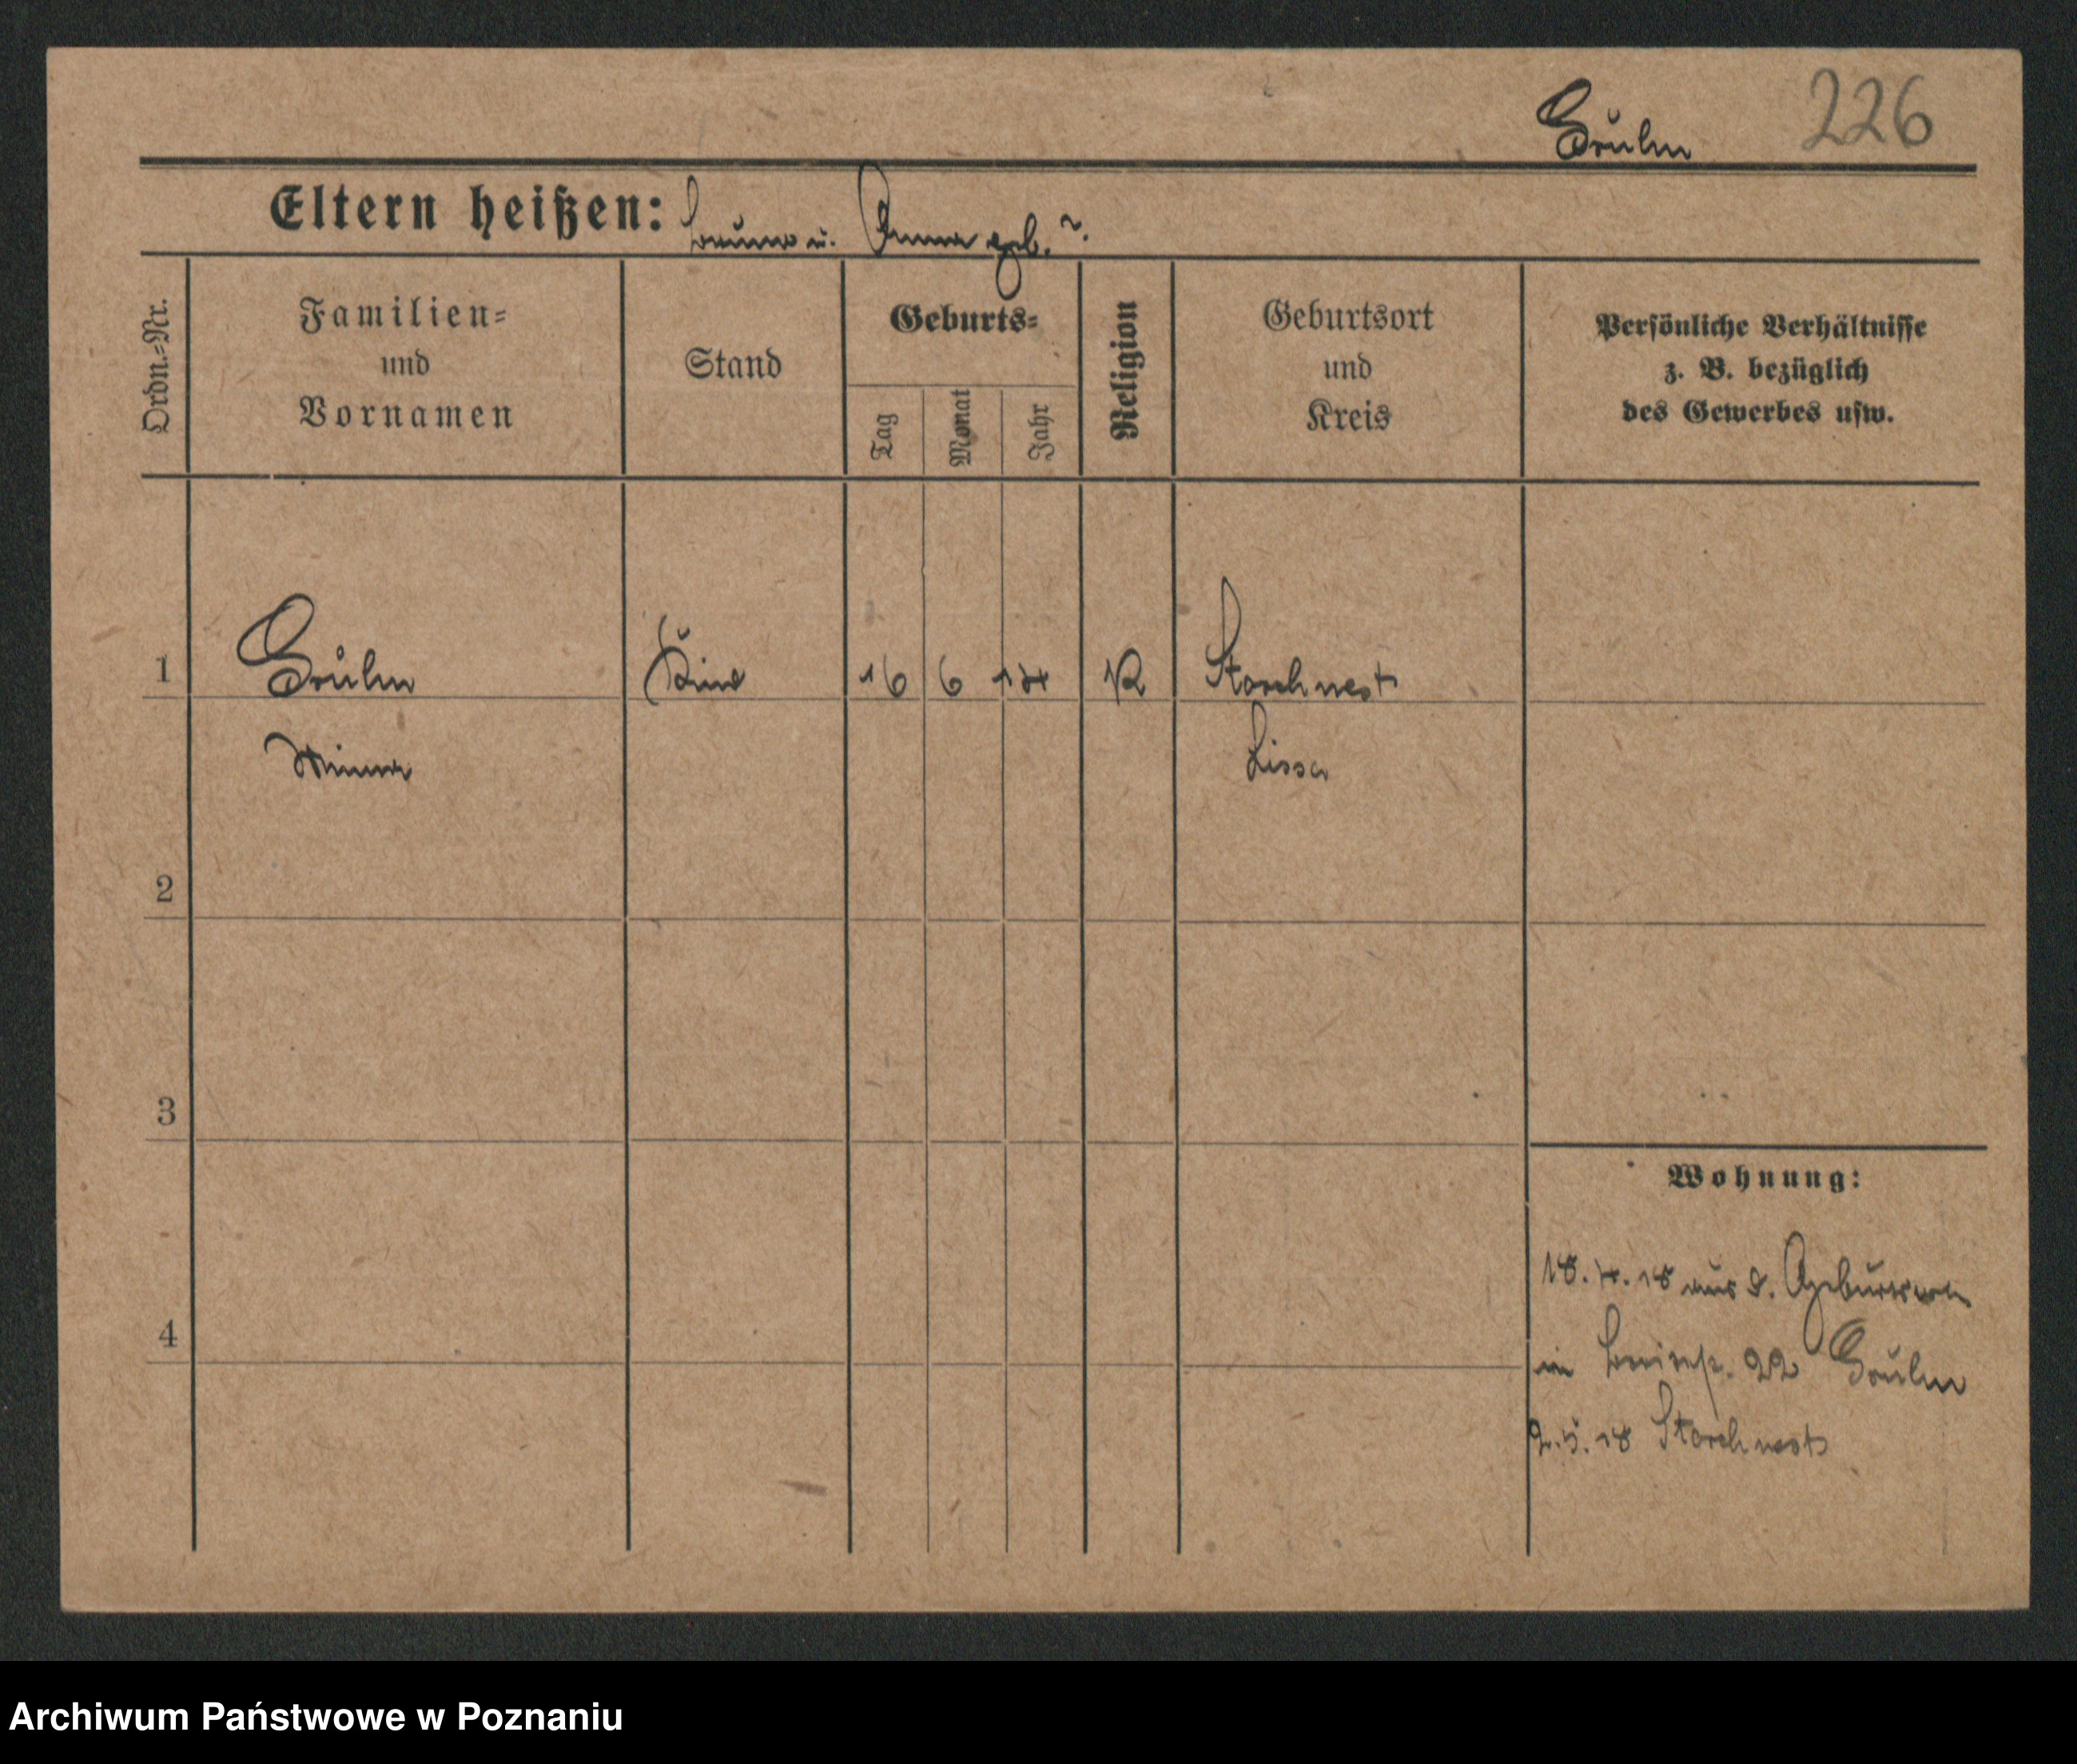 226
Eltern heißen: u. Anna geb. ?
Ordn.-Nr.
Familien-
und
Vornamen
Stand
Geburts-
Tag
Monat
Jahr
Religion
Geburtsort
und
Kreis
Persönliche Verhältnisse
z. B. bezüglich
des Gewerbes usw.
1
Kind 16 6 14 K Storchnest
Lissa
2
3
4
Wohnung:
18.4.18 aus d.
in 22
2.5.18 Storchnest
Archiwum Państwowe w Poznaniu